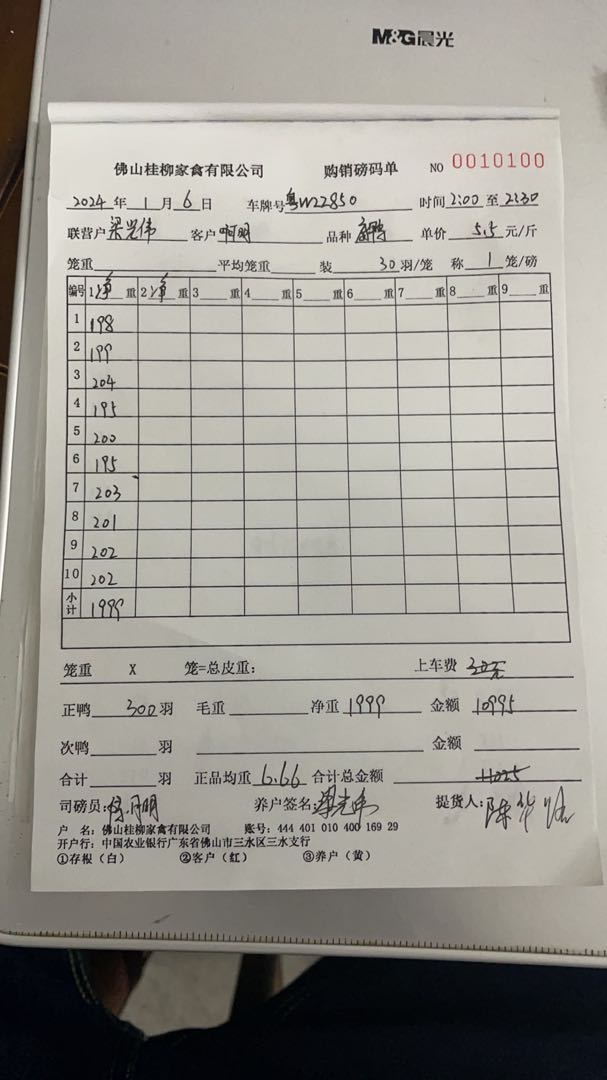 M&G晨光
佛山桂柳家禽有限公司 购销磅码单 NO 0010100
2024 年 1 月 6 日 车牌号 粤W22850 时间 2:00 至 2:30
联营户 梁光伟 客户 啊明 品种 鸭 单价 5.5 元/斤
笼重 平均笼重 装 30 羽/笼 称 1 笼/磅
编号 1 净 重 2 净 重 3 重 4 重 5 重 6 重 7 重 8 重 9 重
1 198
2 199
3 204
4 195
5 200
6 195
7 203
8 201
9 202
10 202
小计 1999
笼重 X 笼=总皮重: 上车费 30元
正鸭 300 羽 毛重 净重 1999 金额 10995
次鸭 羽 金额
合计 羽 正品均重 6.66 合计总金额 11025
司磅员: 明 养户签名: 梁光伟 提货人: 陈华
户 名: 佛山桂柳家禽有限公司 账号: 444 401 010 400 169 29
开户行: 中国农业银行广东省佛山市三水区三水支行
①存根（白） ②客户（红） ③养户（黄）